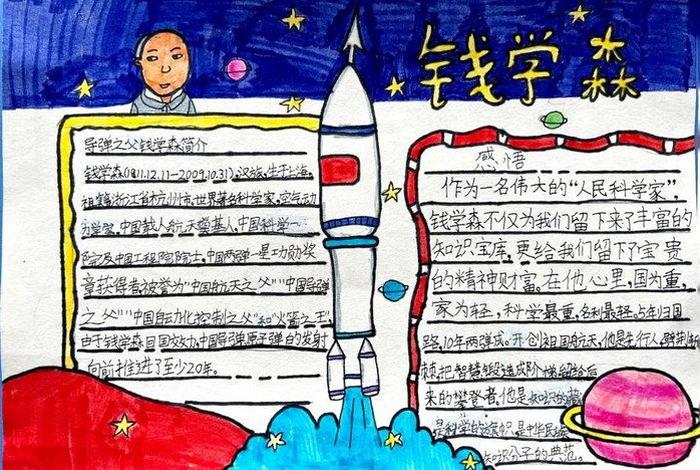 钱学森
导弹之父钱学森简介
钱学森(1911.12.11-2009.10.31),汉族,生于上海,
祖籍浙江省杭州市,世界著名科学家,空气动
力学家,中国载人航天奠基人,中国科学
院及中国工程院院士,中国两弹一星功勋奖
章获得者被誉为"中国航天之父""中国导弹
之父""中国自动化控制之父"和"火箭之王",
由于钱学森回国效力,中国导弹原子弹的发射
向前推进了至少20年。
感悟
作为一名伟大的"人民科学家",
钱学森不仅为我们留下来了丰富的
知识宝库,更给我们留下了宝贵
的精神财富。在他心里,国为重,
家为轻,科学最重,名利最轻。5年归国
路,10年两弹成。开创祖国航天,他是先行人,披荆斩
棘,把智慧锻造成阶梯留给后
来的攀登者。他是知识的藏
是科学的旗帜,是中华民族
知识分子的典范。